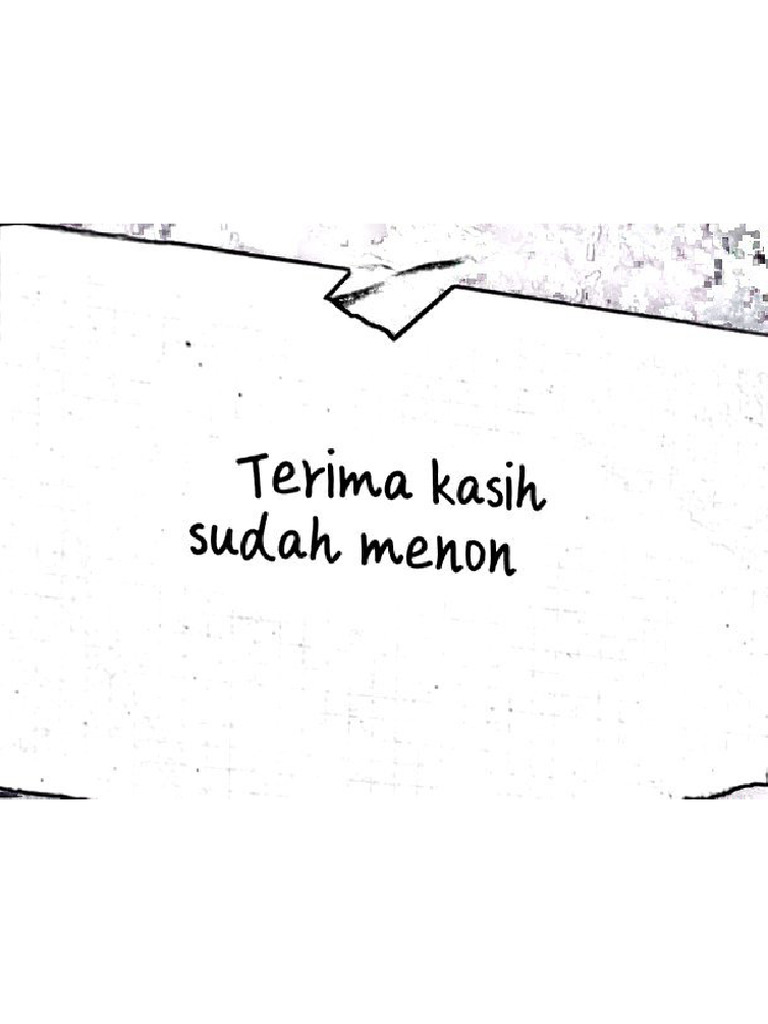 Terima kasih
sudah menon